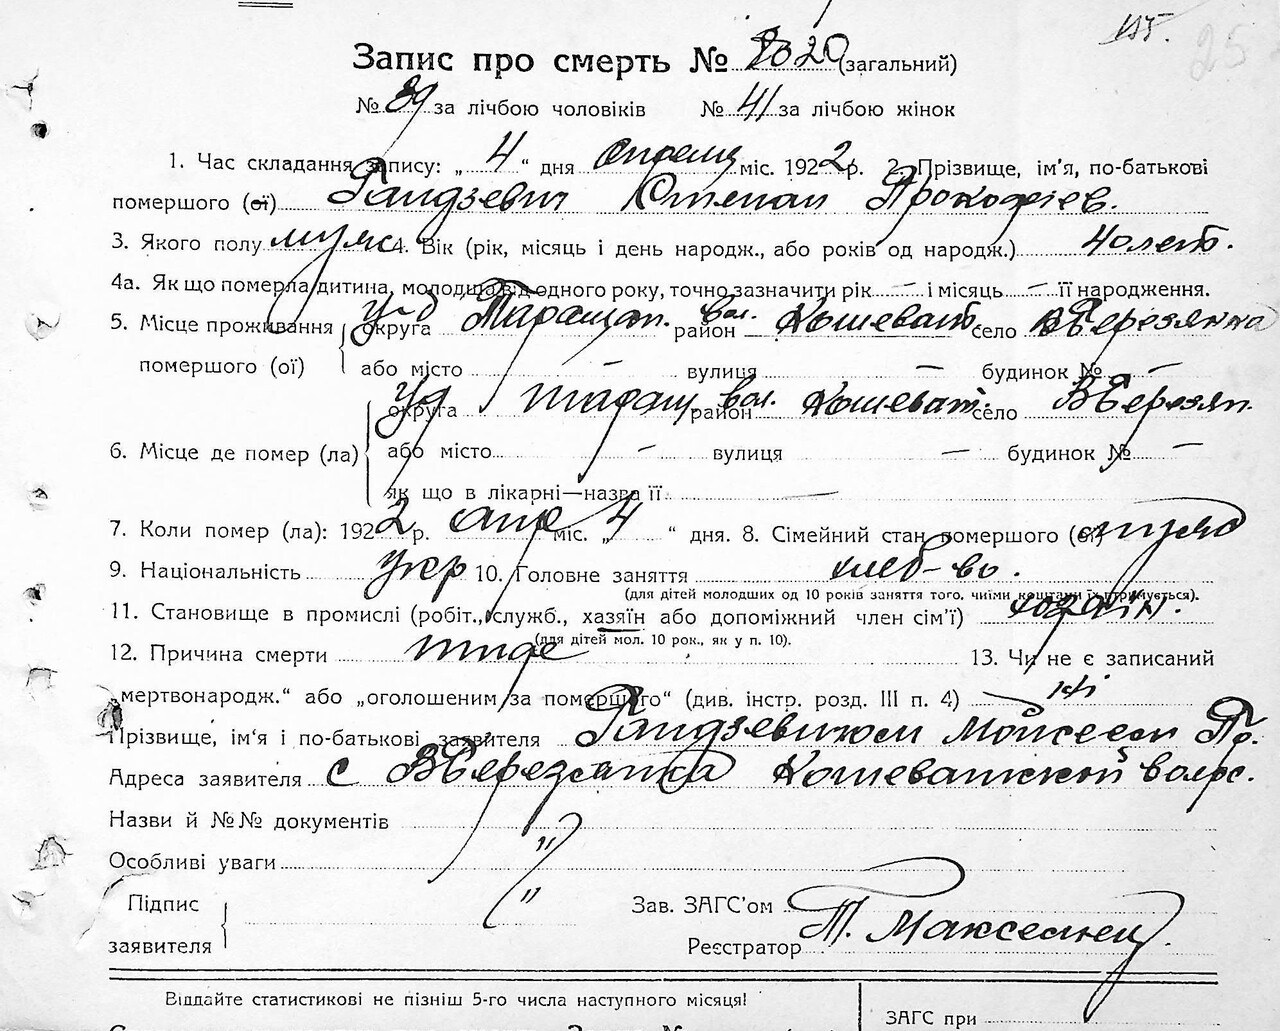 115.
25
Запис про смерть № 20 (загальний)
№ 89 за лічбою чоловіків № 41 за лічбою жінок
1. Час складання запису: „ 4 “ дня апреля міс. 1922 р. 2. Прізвище, ім'я, по-батькові
помершого (ої) Гандзевич Степан Прокофіев.
3. Якого полу муж 4. Вік (рік, місяць і день народж., або років од народж.) 40 лет.
4а. Як що померла дитина, молодша від одного року, точно зазначити рік — і місяць — її народження.
5. Місце проживання округа у-д Таращан. район вол. Кошеват. село В Березянка
помершого (ої) або місто — вулиця — будинок № —
округа уд Таращ район вол. Кошеват. село В Березян.
6. Місце де помер (ла) або місто — вулиця — будинок № —
як що в лікарні—назва її —
7. Коли помер (ла): 1922 р. апр міс. „ 4 “ дня. 8. Сімейний стан помершого (ої)
9. Національність укр 10. Головне заняття хлеб-во.
(для дітей молодших од 10 років заняття того, чиїми коштами їх втримується).
11. Становище в промислі (робіт., служб., хазяїн або допоміжний член сім'ї) хозяїн.
(для дітей мол. 10 рок., як у п. 10).
12. Причина смерти тиф 13. Чи не є записаний
„мертвонародж.“ або „оголошеним за помершого“ (див. інстр. розд. III п. 4) — ні
Прізвище, ім'я і по-батькові заявителя Гандзевичом Мойсеем Пр.
Адреса заявителя с В Березянка Кошеватской волос.
Назви й №№ документів "
Особливі уваги "
Підпис
заявителя
Зав. ЗАГС'ом
Реєстратор Т.
Віддайте статистикові не пізніш 5-го числа наступного місяця!
ЗАГС при